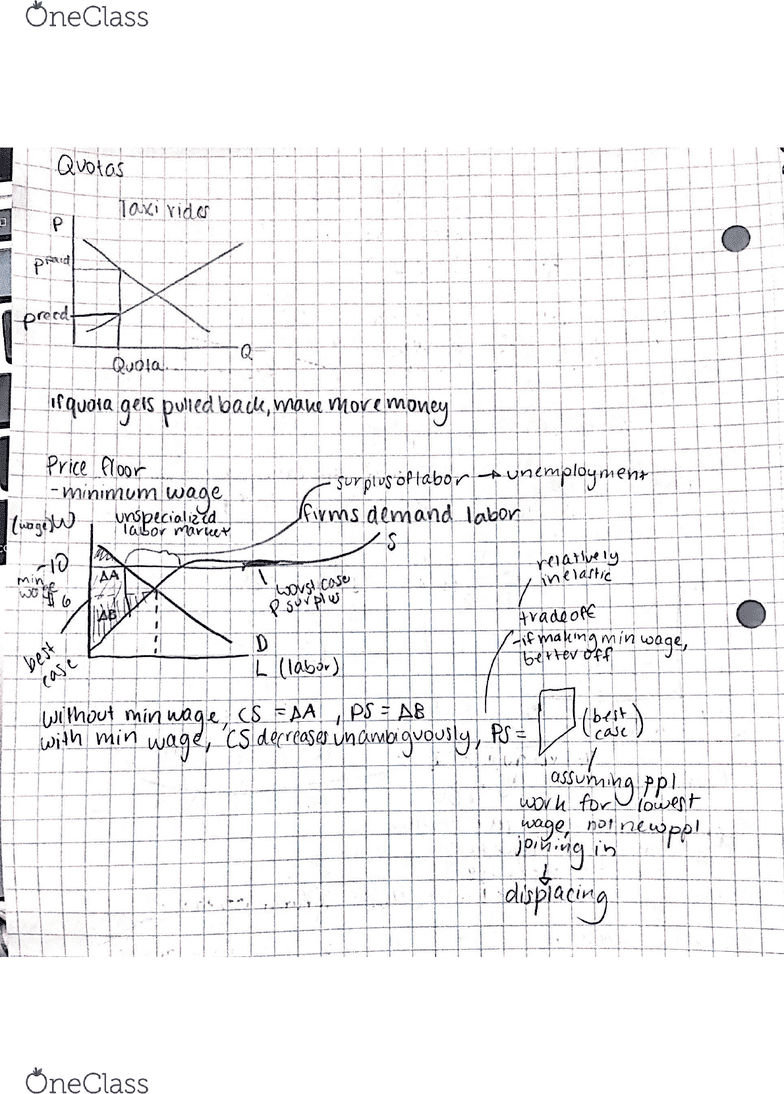 OneClass
Quotas
Taxi rides
P
Ppaid
precd
Quota
Q
if quota gets pulled back, make more money
Price floor
-minimum wage
surplus of labor → unemployment
unspecialized
labor market
firms demand labor
(wage) W
S
10
min
wage
$6
ΔA
ΔB
worst case
P surplus
best
case
D
L (labor)
relatively
inelastic
tradeoff
-if making min wage,
better off
without min wage, CS = ΔA , PS = ΔB
with min wage, CS decreases unambiguously, PS =
(best
case)
assuming ppl
work for lowest
wage, not new ppl
joining in
↓
displacing
OneClass